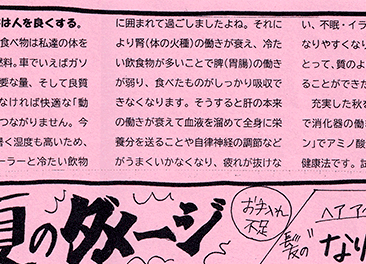 は人を良くする。
食べ物は私達の体を
燃料。車でいえばガソ
要な量、そして良質
なければ快適な「動
つながりません。今
暑く湿度も高いため、
ーラーと冷たい飲物
に囲まれて過ごしましたよね。それに
より腎(体の火種)の働きが衰え、冷た
い飲食物が多いことで脾(胃腸)の働き
が弱り、食べたものがしっかり吸収で
きなくなります。そうすると肝の本来
の働きが衰えて血液を溜めて全身に栄
養分を送ることや自律神経の調節など
がうまくいかなくなり、疲れが抜けな
い、不眠・イラ
なりやすくなり
とって、質のよ
ることができた
充実した秋を
で消化器の働
ン」でアミノ酸
健康法です。試
夏のダメージ
お手入れ
不足
ヘアア
髪の
なり